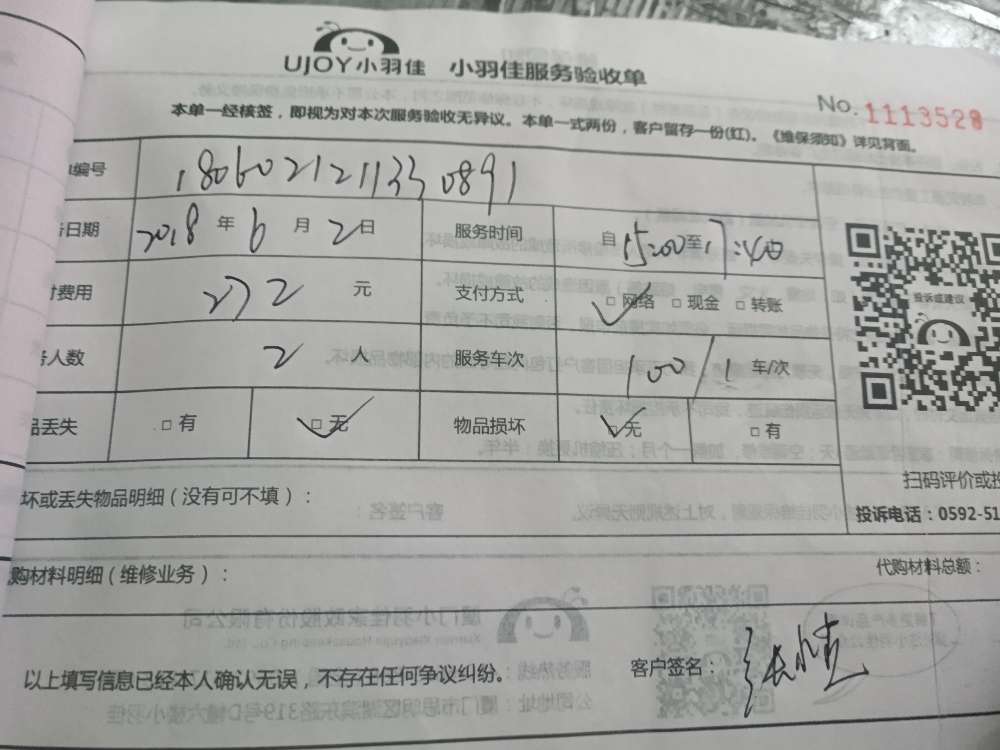 UJOY小羽佳 小羽佳服务验收单
No. 1113528
本单一经核签，即视为对本次服务验收无异议。本单一式两份，客户留存一份(红)。《维保须知》详见背面。
编号 180602121133 0891
日期 2018 年 6 月 2 日 服务时间 自 15:00 至 17:40
费用 272 元 支付方式 □ 网络 □ 现金 □ 转账
人数 2 人 服务车次 100/1 车/次
品丢失 □ 有 □ 无 物品损坏 □ 无 □ 有
投诉或建议
坏或丢失物品明细（没有可不填）：
扫码评价或投
投诉电话：0592-51
购材料明细（维修业务）：
代购材料总额：
以上填写信息已经本人确认无误，不存在任何争议纠纷。
客户签名：